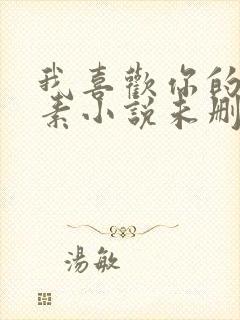 我喜歡你的
素小說未刪
湯敏